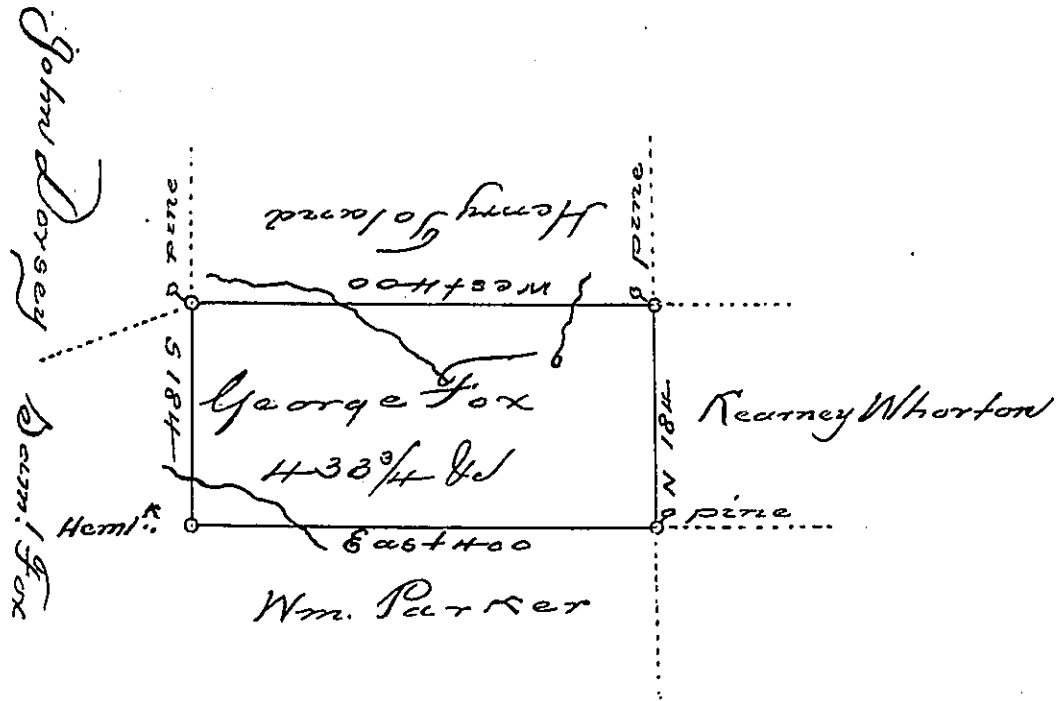 John Dorsey
Saml Fox
pine
Henry Toland
West 400
pine
S 184
George Fox
433 3/4 &c
N 184
Kearney Whorton
Heml.k
East 400
pine
Wm. Parker